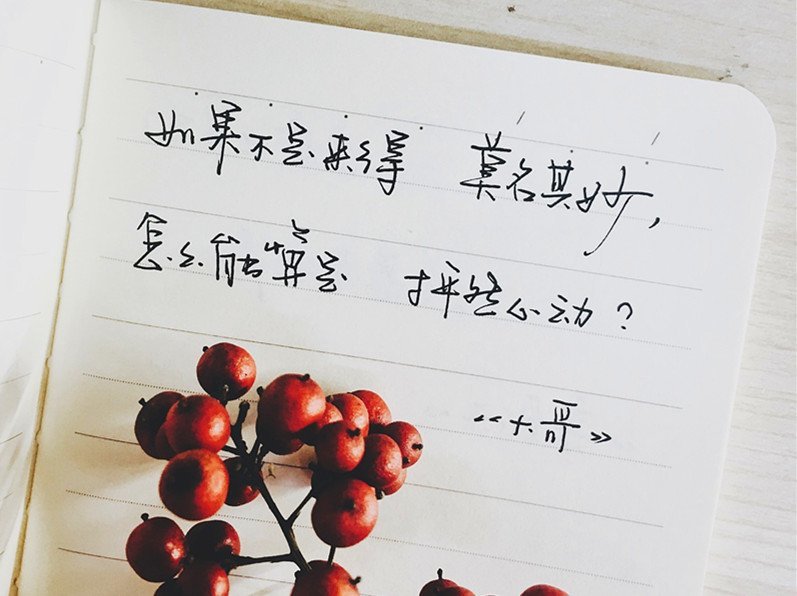 如果不是来得 莫名其妙,
怎么能算是 抨然心动?
《大哥》